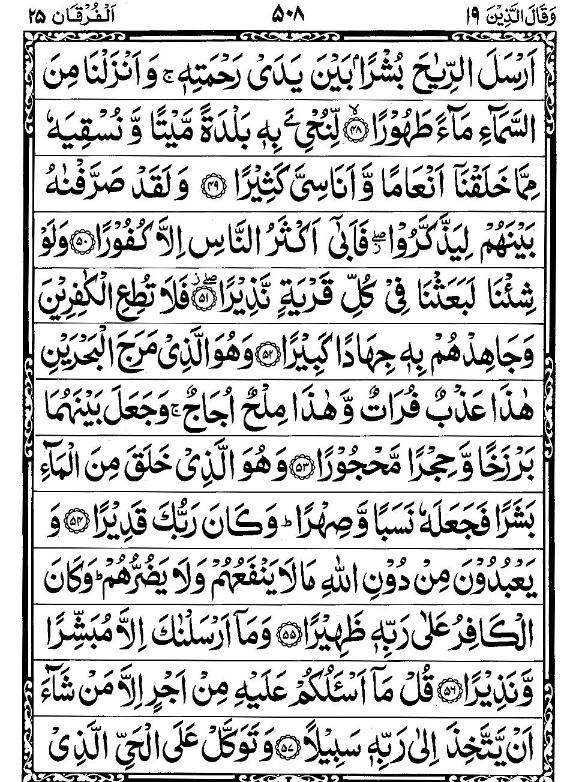 وَقَالَ الَّذِيْنَ ١٩ ٥٠٨ اَلْفُرْقَان ٢٥
اَرْسَلَ الرِّيٰحَ بُشْرًۢا بَيْنَ يَدَىْ رَحْمَتِهٖ ۚ وَ اَنْزَلْنَا مِنَ
السَّمَآءِ مَآءً طَهُوْرًا ۙ﴿۴۸﴾ لِّنُحْیِۦَ بِهٖ بَلْدَةً مَّيْتًا وَّ نُسْقِيَهٗ
مِمَّا خَلَقْنَاۤ اَنْعَامًا وَّ اَنَاسِیَّ كَثِيْرًا ﴿۴۹﴾ وَ لَقَدْ صَرَّفْنٰهُ
بَيْنَهُمْ لِيَذَّكَّرُوْا ۖ فَاَبٰۤى اَكْثَرُ النَّاسِ اِلَّا كُفُوْرًا ﴿۵۰﴾ وَلَوْ
شِئْنَا لَبَعَثْنَا فِیْ كُلِّ قَرْيَةٍ نَّذِيْرًا ﴿۵۱﴾ ۖ فَلَا تُطِعِ الْكٰفِرِيْنَ
وَجَاهِدْهُمْ بِهٖ جِهَادًا كَبِيْرًا ﴿۵۲﴾ وَهُوَ الَّذِیْ مَرَجَ الْبَحْرَيْنِ
هٰذَا عَذْبٌ فُرَاتٌ وَّ هٰذَا مِلْحٌ اُجَاجٌ ۚ وَجَعَلَ بَيْنَهُمَا
بَرْزَخًا وَّ حِجْرًا مَّحْجُوْرًا ﴿۵۳﴾ وَ هُوَ الَّذِیْ خَلَقَ مِنَ الْمَآءِ
بَشَرًا فَجَعَلَهٗ نَسَبًا وَّ صِهْرًا ؕ وَ كَانَ رَبُّكَ قَدِيْرًا ﴿۵۴﴾ وَ
يَعْبُدُوْنَ مِنْ دُوْنِ اللّٰهِ مَا لَا يَنْفَعُهُمْ وَ لَا يَضُرُّهُمْ ؕ وَكَانَ
الْكَافِرُ عَلٰى رَبِّهٖ ظَهِيْرًا ﴿۵۵﴾ وَمَاۤ اَرْسَلْنٰكَ اِلَّا مُبَشِّرًا
وَّ نَذِيْرًا ﴿۵۶﴾ قُلْ مَاۤ اَسْـَٔلُكُمْ عَلَيْهِ مِنْ اَجْرٍ اِلَّا مَنْ شَآءَ
اَنْ يَّتَّخِذَ اِلٰى رَبِّهٖ سَبِيْلًا ﴿۵۷﴾ وَ تَوَكَّلْ عَلَى الْحَیِّ الَّذِیْ